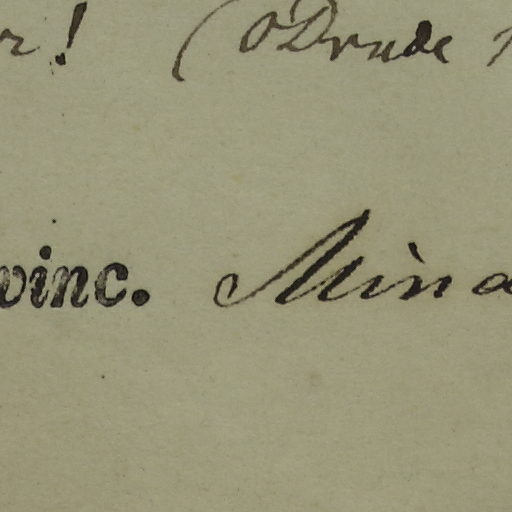 r! (O Drude
vinc. Mina